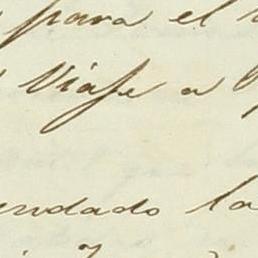 para el
Viaje a
endado la